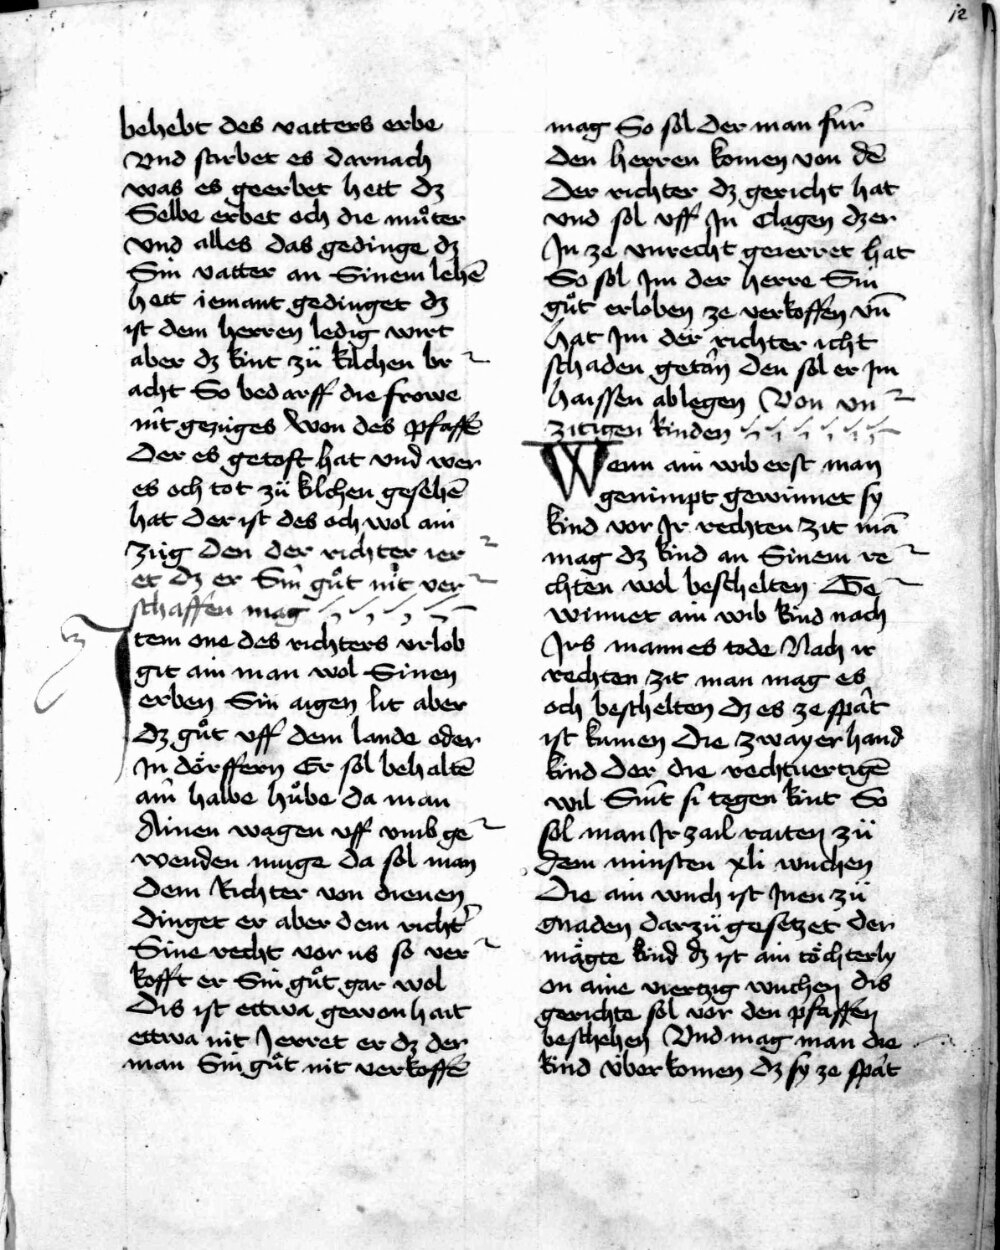 12
behebt des vatters erbe
Vnd stirbet es darnach
was es geerbet hett dz
Selbe erbet och die muͦter
vnd alles das gedinge dz
Sin vatter an Sinem lehē
hett iemant gedinget dz
ist dem herren ledig wirt
aber dz kint zü kilchen br
acht So bedarff die frowe
nit gezüges Won des pfaffē
Der es getoft hat vnd wer
es och tot zü kilchen gesehē
hat der ist des och wol ain
züg Den der richter ier
et dz er Sin guͦt nit ver
schaffen mag
Item one des richters vrlob
git ain man wol Sinen
erben Sin aigen lit aber
dz guͦt vff dem lande oder
In dörffern Er sol behaltē
ain halbe huͦbe da man
Ainen wagen vff vmb ge
wenden muge da sol man
dem Richter von dienen
dinget er aber dem richt̄
Sine recht vor us so ver
kofft er Sin guͦt gar wol
Dis ist ettwa gewonhait
ettwa nit Ierret er dz der
man Sin guͦt nit verkoffē
mag So sol der man für
den herren komen von dē
der richter dz gericht hat
vnd sol vff In clagen dz er
In ze vnrecht geierret hat
So sol Im der herre Sin
guͦt erloben ze verkoffen vn̄
hat Im der richter icht
schaden getan den sol er Im
haissen ablegen Von vn
zitigen kinden
Wenn ain wib erst man
genimpt gewinnet sy
kind vor Ir rechten zit mā
mag dz kind an Sinem re
chten wol beschelten Ge
winnet ain wib kind nach
Irs mannes tode Nach ir
rechten zit man mag es
och beschelten dz es ze spat
ist kumen Die zwayerhand
kind der die rechtuertigē
wil Sint si tegen kint So
sol man Ir zail raiten zü
dem minsten xli wuchen
Die ain wuch ist Inen zü
gnaden darzü gesetzet der
mägte kind dz ist ain töchterly
on aine viertzig wuchen dis
gerichte sol vor den pfaffen
beschehen Vnd mag man die
kind über komen dz sy ze spat